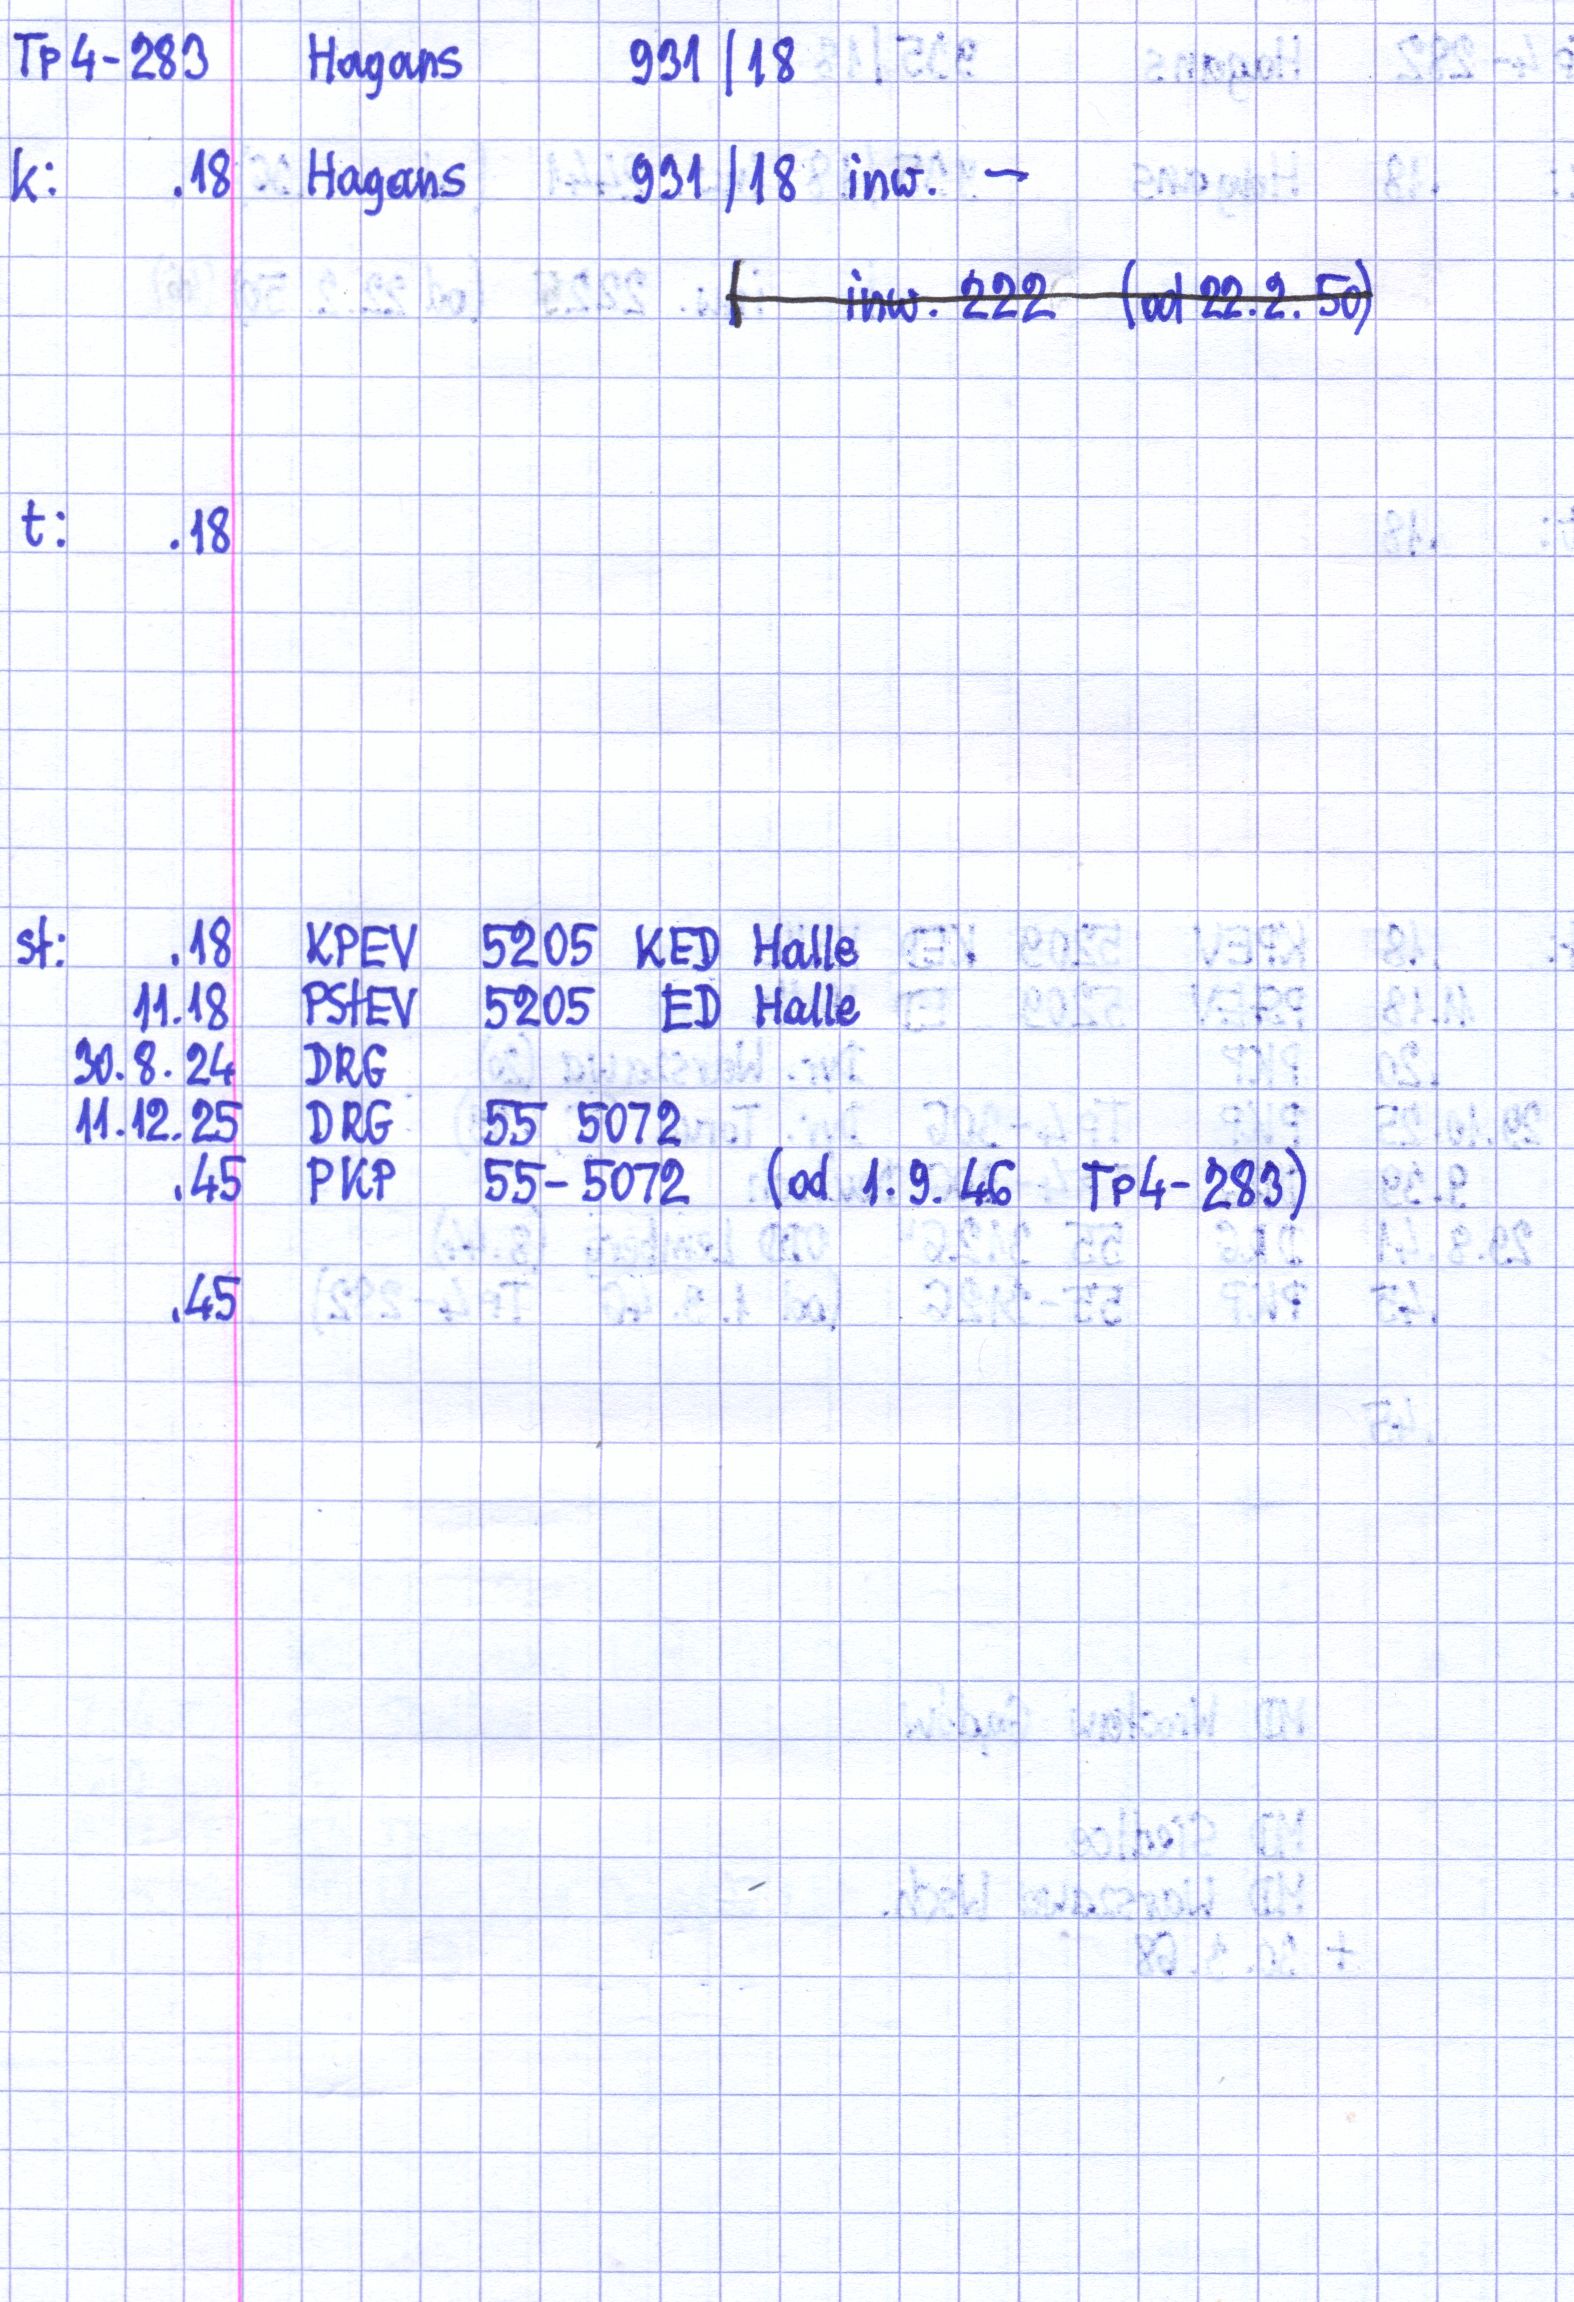 Tp4-283 Hagans 931/18
k: .18 Hagans 931/18 inw. -
/ inw. 222 (od 22.2.50)
t: .18
st: .18 KPEV 5205 KED Halle
11.18 PStEV 5205 ED Halle
30.8.24 DRG
11.12.25 DRG 55 5072
.45 PKP 55-5072 (od 1.9.46 Tp4-283)
.45